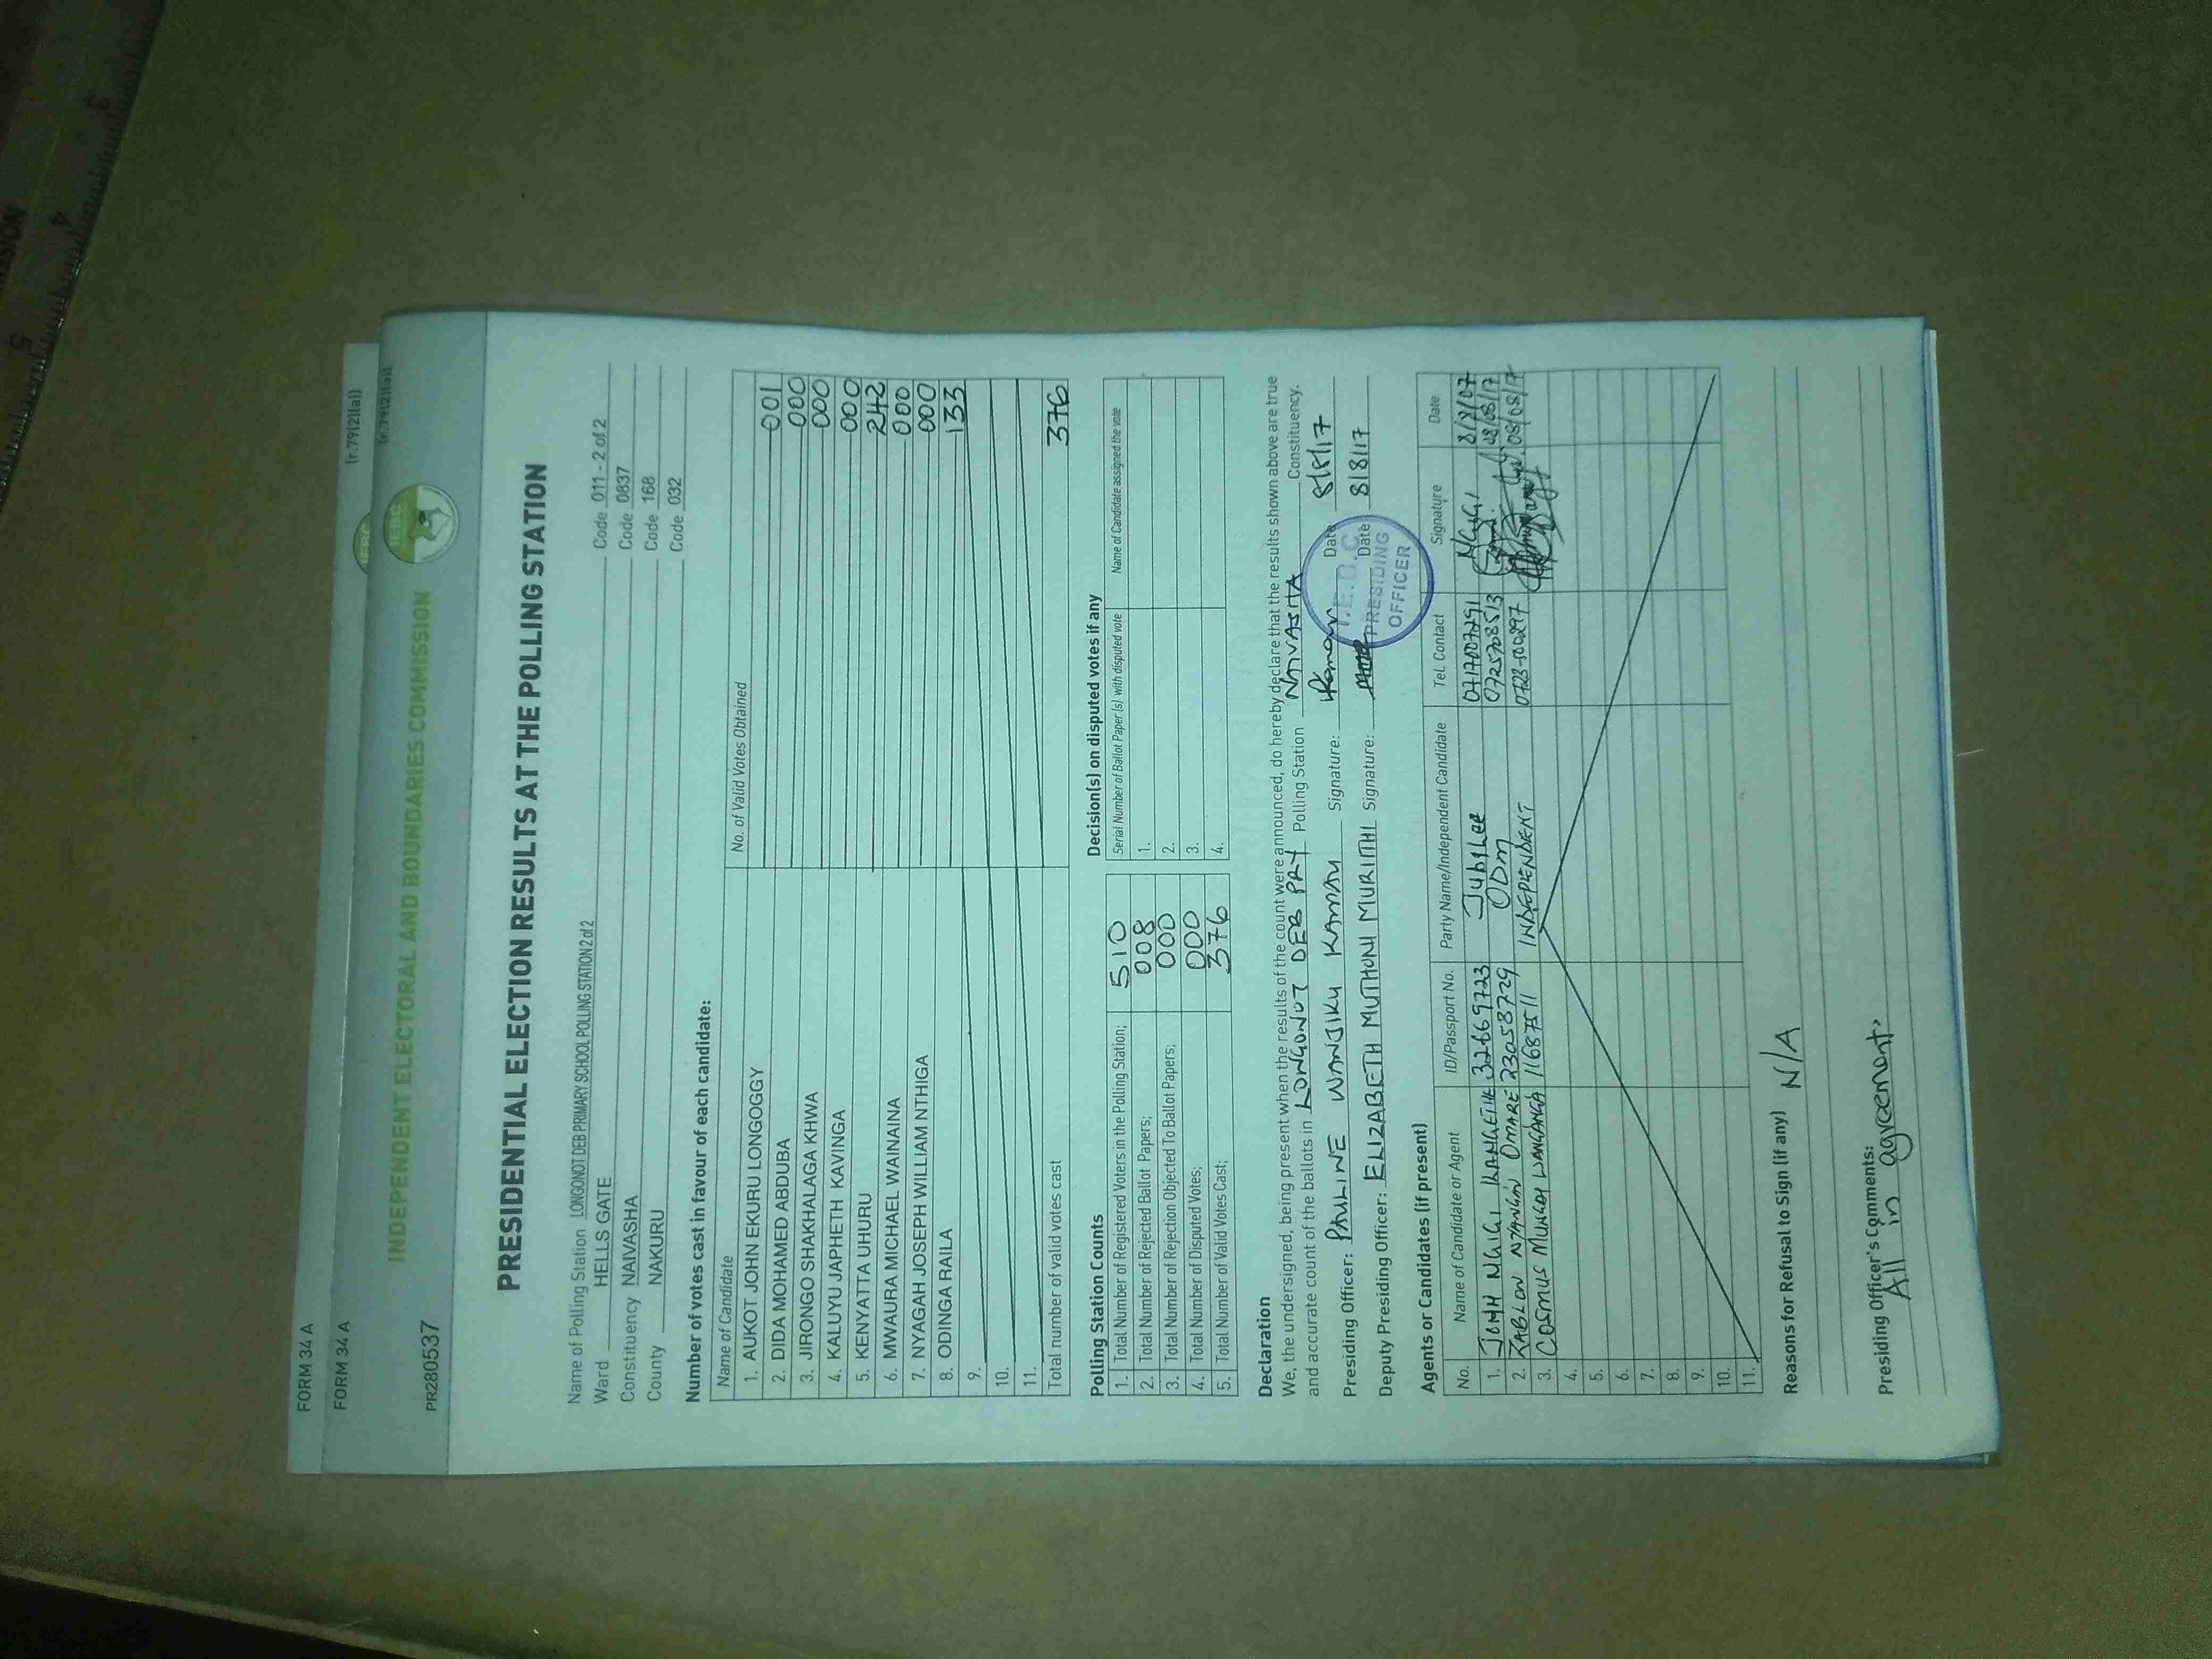 FORM 34 A
(r.79(2)(a))
FORM 34 A
(r.79(2)(a))
IEBC
INDEPENDENT ELECTORAL AND BOUNDARIES COMMISSION
IEBC
PR280537
PRESIDENTIAL ELECTION RESULTS AT THE POLLING STATION
Name of Polling Station LONGONOT DEB PRIMARY SCHOOL POLLING STATION 2 of 2 Code 011 - 2 of 2
Ward HELLS GATE Code 0837
Constituency NAIVASHA Code 168
County NAKURU Code 032
Number of votes cast in favour of each candidate:
Name of Candidate No. of Valid Votes Obtained
1. AUKOT JOHN EKURU LONGOGGY 001
2. DIDA MOHAMED ABDUBA 000
3. JIRONGO SHAKHALAGA KHWA 000
4. KALUYU JAPHETH KAVINGA 000
5. KENYATTA UHURU 242
6. MWAURA MICHAEL WAINAINA 000
7. NYAGAH JOSEPH WILLIAM NTHIGA 000
8. ODINGA RAILA 133
9.
10.
11.
Total number of valid votes cast 376
Polling Station Counts
1. Total Number of Registered Voters in the Polling Station; 510
2. Total Number of Rejected Ballot Papers; 008
3. Total Number of Rejection Objected To Ballot Papers; 000
4. Total Number of Disputed Votes; 000
5. Total Number of Valid Votes Cast; 376
Decision(s) on disputed votes if any
Serial Number of Ballot Paper (s) with disputed vote Name of Candidate assigned the vote
1.
2.
3.
4.
Declaration
We, the undersigned, being present when the results of the count were announced, do hereby declare that the results shown above are true
and accurate count of the ballots in LONGONOT DEB PRY Polling Station NAIVASHA Constituency.
Presiding Officer: PAULINE WANJIKU KAMAU Signature: Kamau Date 8/8/17
Deputy Presiding Officer: ELIZABETH MUTHONI MURITHI Signature: Date 8/8/17
I.E.B.C
PRESIDING
OFFICER
Agents or Candidates (if present)
No. Name of Candidate or Agent ID/Passport No. Party Name/Independent Candidate Tel. Contact Signature Date
1. JOHN NGIGI KANGETHE 32669723 Jubilee 0717007291 NGIGI 8/8/07
2. ZABLON NYANGAU OMARE 23058729 ODM 0725708513 08/08/17
3. COSMUS MUNGAI WANGANGA 11687511 INDEPENDENT 0723-500297 08/08/17
4.
5.
6.
7.
8.
9.
10.
11.
Reasons for Refusal to Sign (if any) N/A
Presiding Officer's Comments:
All in agreement.